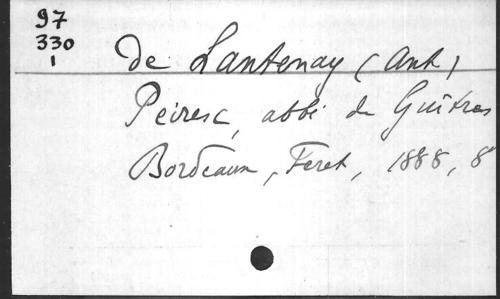 97
330
1
de Lantenay (Ant)
Peiresc, abbé de Guîtres
Bordeaux, Feret, 1888, 8°